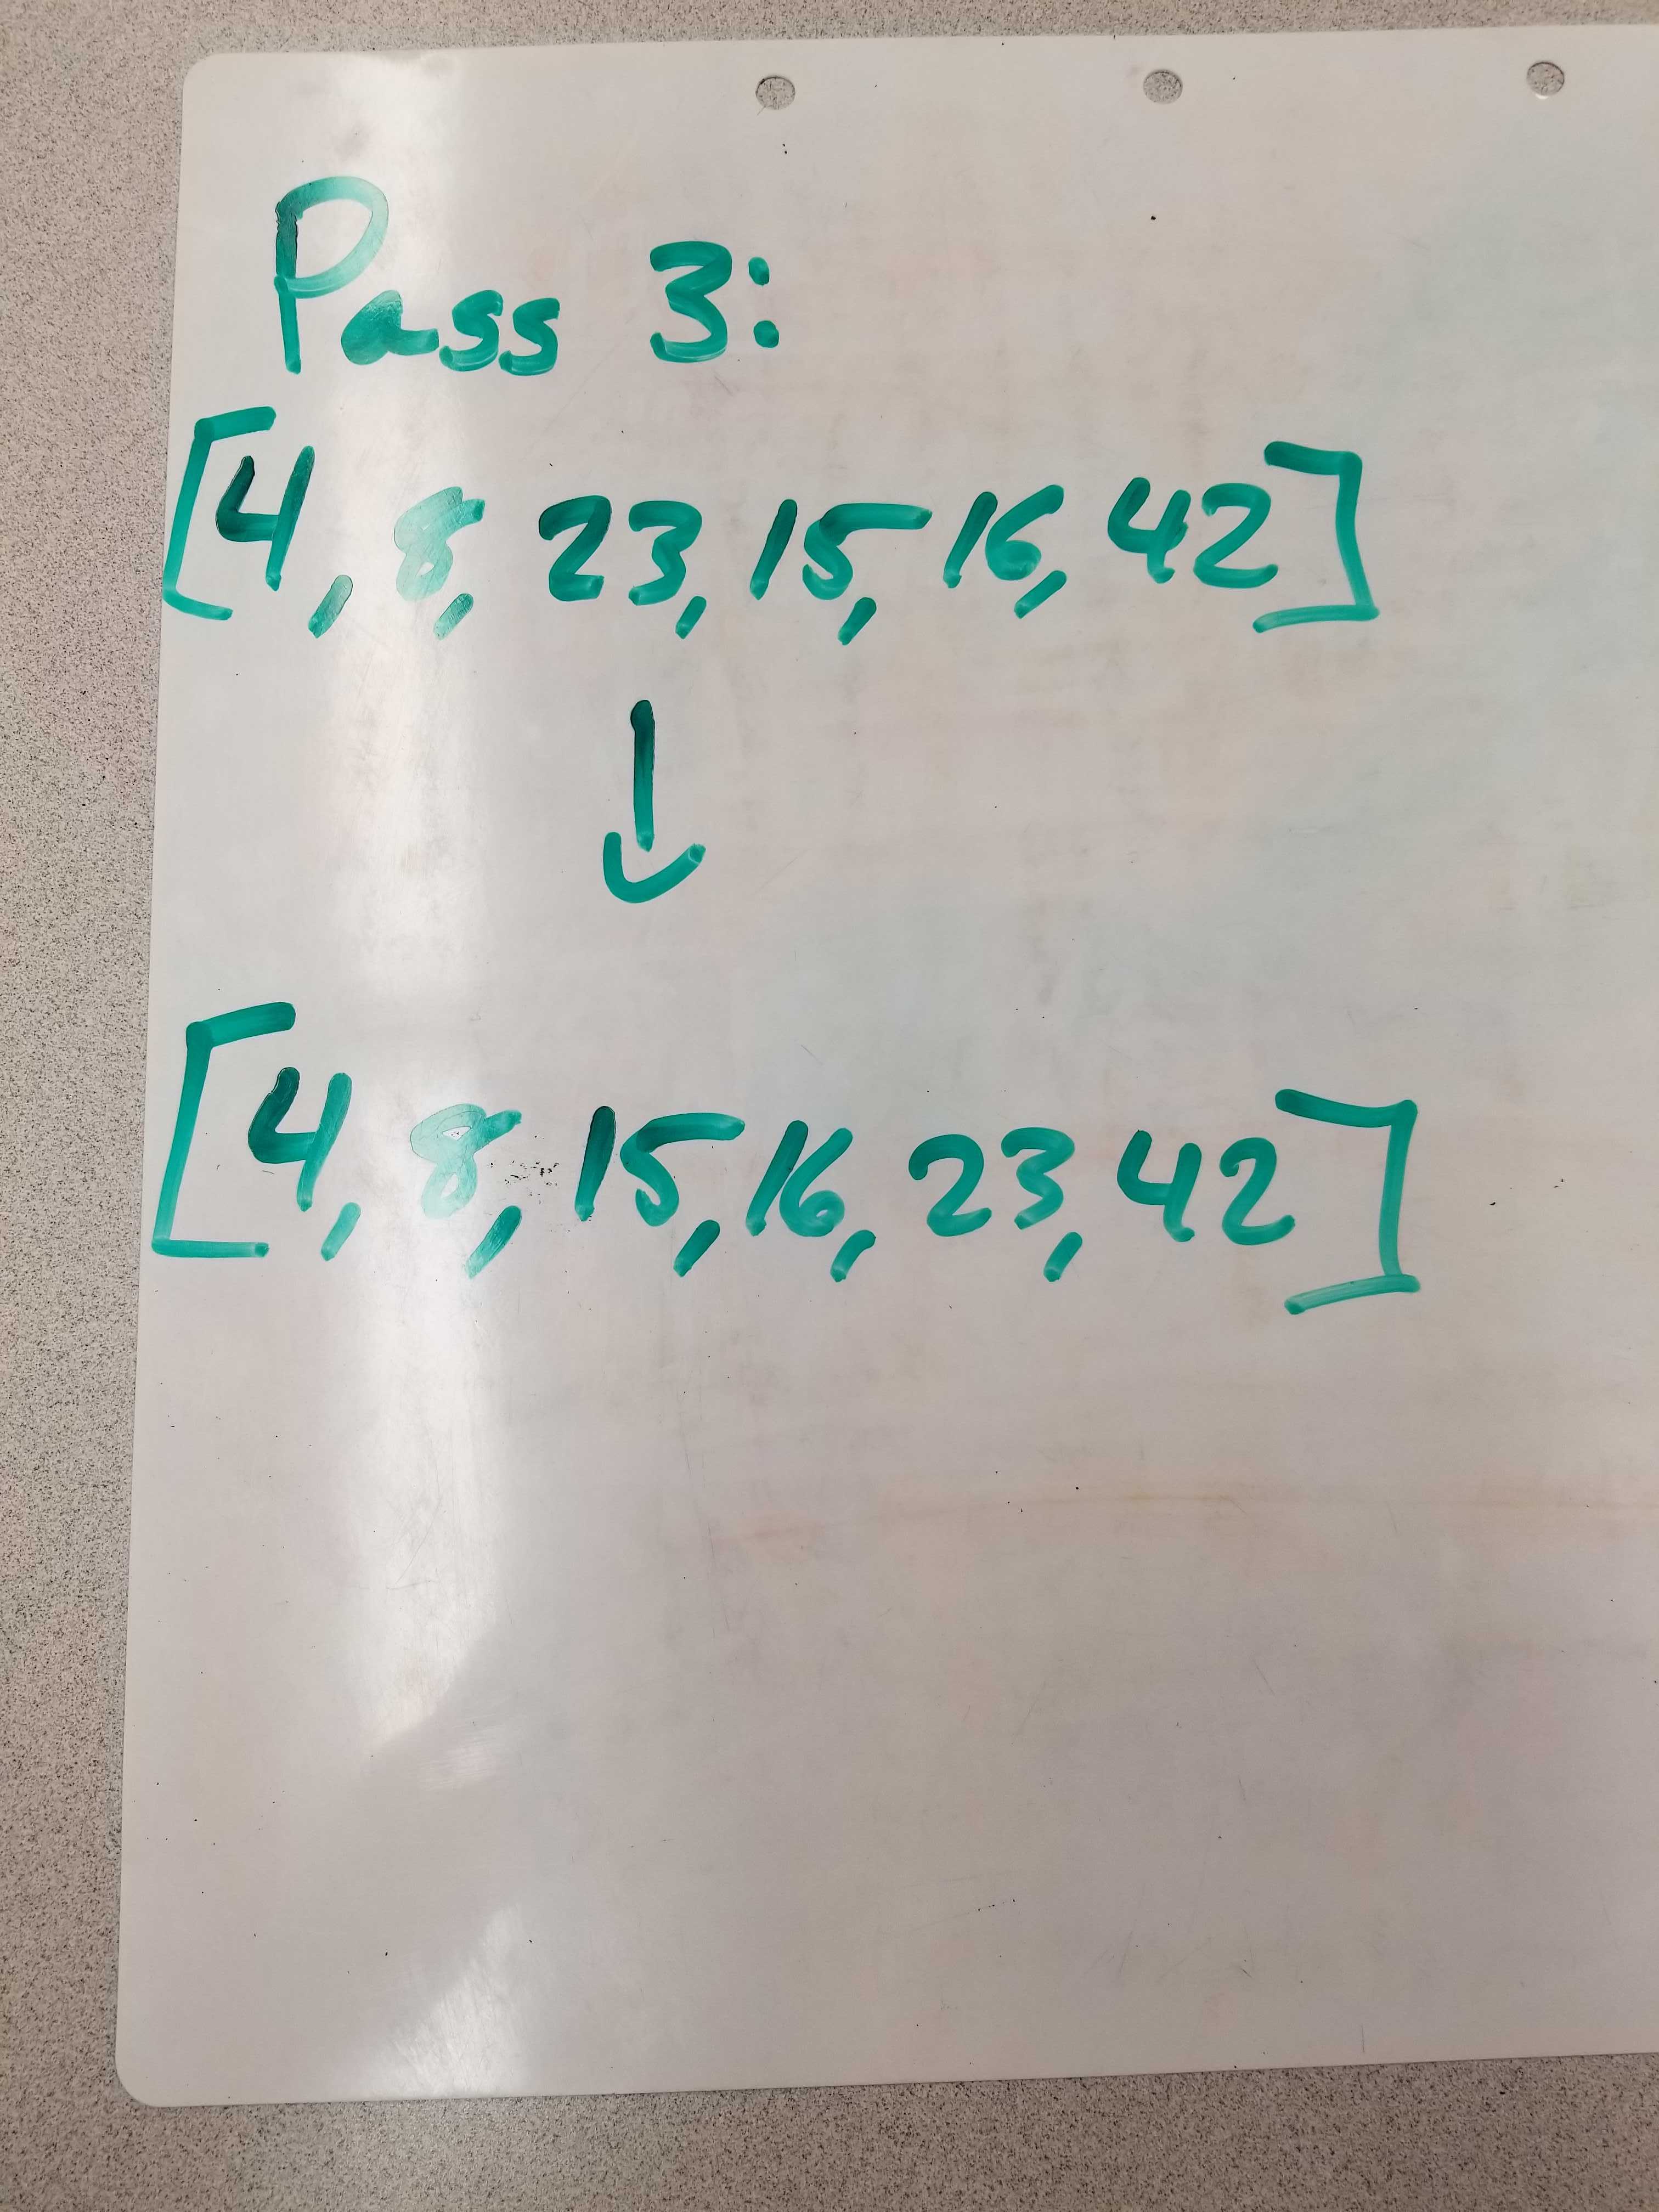 Pass 3:
[4, 8, 23, 15, 16, 42]
↓
[4, 8, 15, 16, 23, 42]